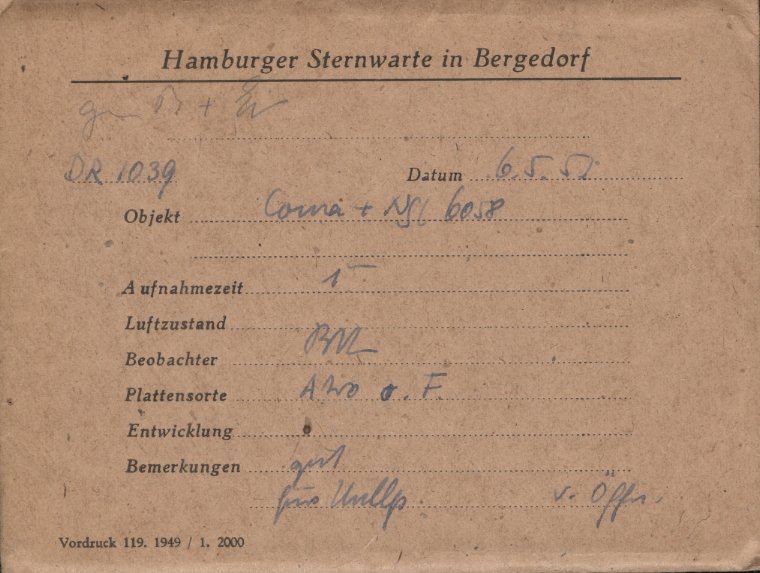 Hamburger Sternwarte in Bergedorf
DR 1039 Datum 6.5.51
Objekt Coma + NGC 6058
Aufnahmezeit
Luftzustand
Beobachter
Plattensorte o. F.
Entwicklung
Bemerkungen gut
für Nullp. v. Öffn.
Vordruck 119. 1949 / 1. 2000